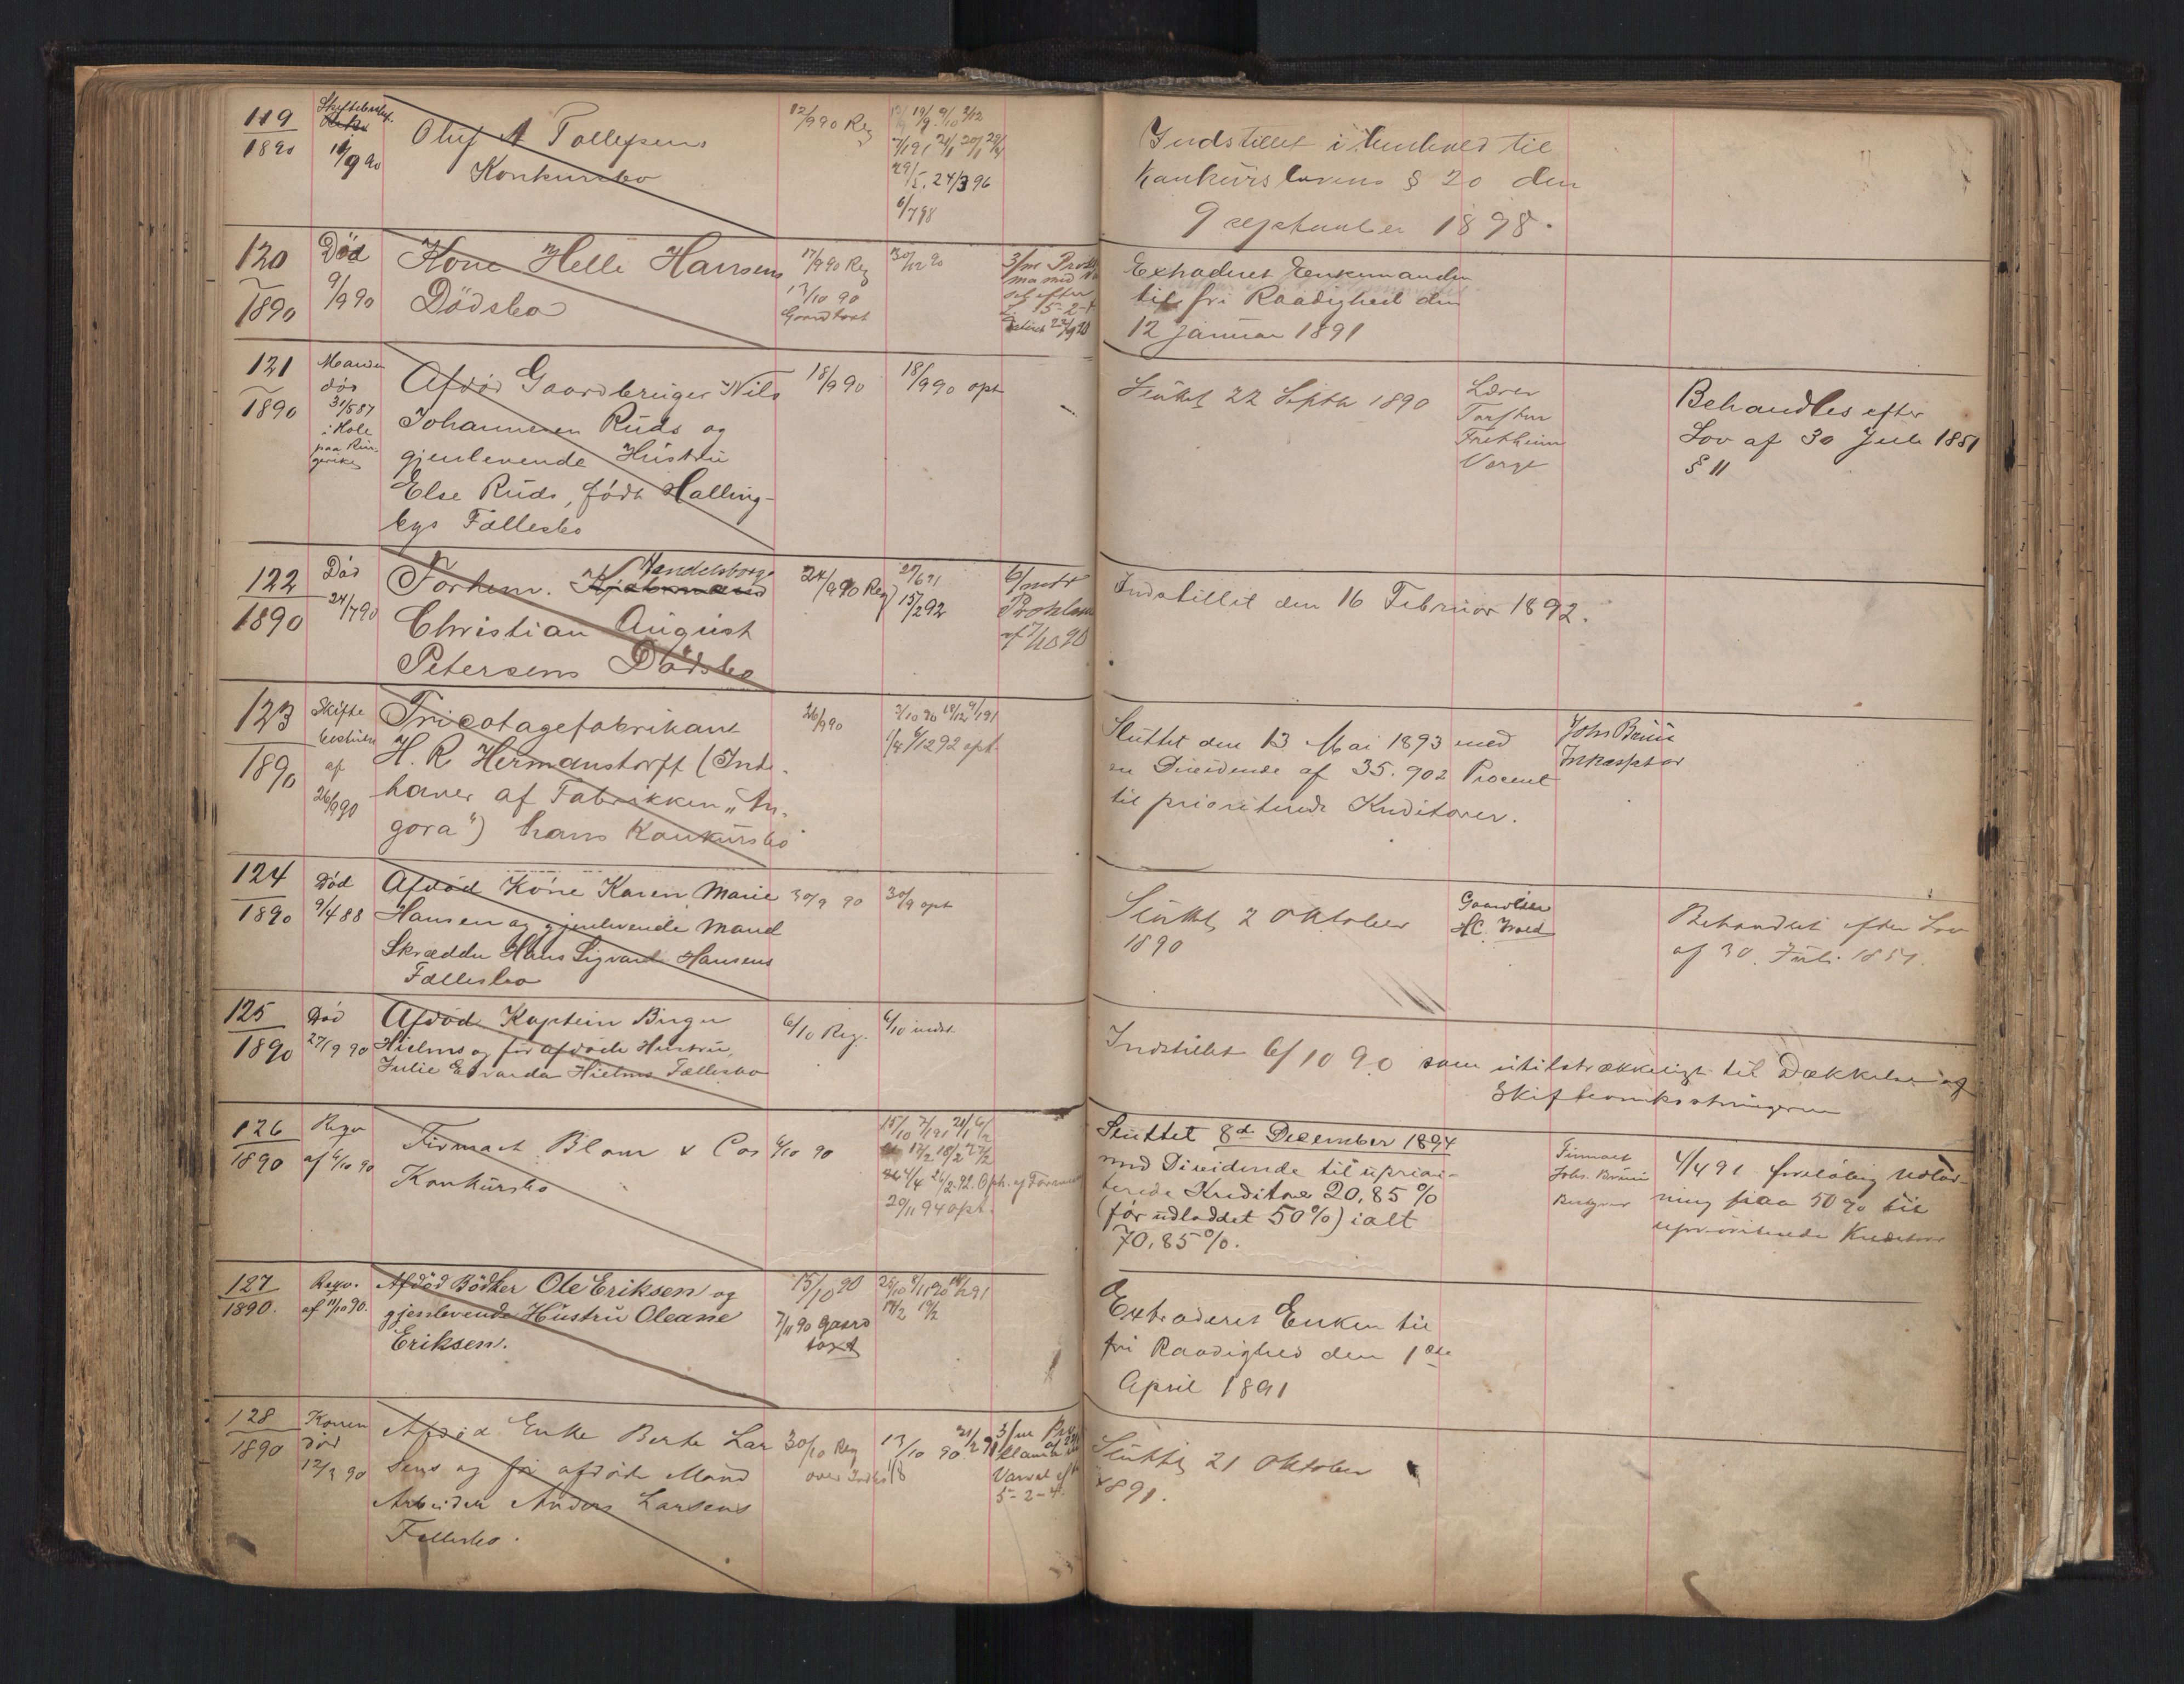 119
1890
11/9 90
Oluf A Tollefsens
Konkursbo
12/9 90 Reg
24/3 96
6/7 98
Indstillet i Henhold til
Konkurslovens § 20 den
9 september 1898.
120
1890
Död
9/9 90
Kone Helle Hansens
Dödsbo
17/9 90 Reg
13/10 90
30/12 90
3/m
5-2-4
Extraderet Enkemanden
til fri Raadighed den
12 Januar 1891
121
1890
Manden
död
31/5 87
i Hole
paa Rin-
gerike
Afdöd Gaardbruger Nils
Johannesen Ruds og
gjenlevende Hustru
Else Ruds, född Halling-
bys Fællesbo
18/9 90
18/9 90 opt
Sluttet 22 Septbr 1890
Lærer
Fretheim
Værge
Behandles efter
Lov af 30 Juli 1851
§ 11
122
1890
Död
24/7 90
Forhenv. Kjöbmand Handelsborger
Christian August
Petersens Dödsbo
24/9 90 Reg
27/6 91
15/2 92
6/mdr
Proklama
af 7/10 90
Indstillet den 16 Februar 1892.
123
1890
Skifte
beslutn
af
26/9 90
Tricotagefabrikant
H. R. Hermanstorff (Inde-
haver af Fabrikken "An-
gora") hans Konkursbo
26/9 90
Sluttet den 13 Mai 1893 med
en Dividende af 35.902 Procent
til prioriterede Kreditorer.
John Bruun
Inkassator
124
1890
Död
9/4 88
Afdöd Kone Karen Marie
Hansen og gjenlevende Mand
Skrædder Hans Sigvard Hansens
Fællesbo
30/9 90
30/9 opt
Sluttet 2 Oktober
1890
Behandlet efter Lov
af 30. Juli 1851.
125
1890
Död
27/9 90
Afdöd Kaptein Birger
Hielms og för afdöde Hustru,
Julie Edvarda Hielms Fællesbo
6/10 Reg.
6/10 indst.
Indstillet 6/10 90 som utilstrækkeligt til Dækkelse af
Skifteomkostningerne
126
1890
Reqv
af 6/10 90
Firmaet Blom & Cos
Konkursbo
6/10 90
20/11 94 opt.
Sluttet 8de December 1894
med Dividende til uprioi-
terede Kreditorer 20,85 %
(för udloddet 50%) ialt
70,85%.
Firmaet
Johs. Bruun
Bestyrer
4/4 91 foreløbig Udlod-
ning paa 50 % til
uprioriterede Kreditorer
127
1890.
Reqv.
af 11/10 90.
Afdöd Bödker Ole Eriksen og
gjenlevende Hustru Oleane
Eriksen.
15/10 90
7/11 90 Gaard
taxt
Extraderet Enken til
fri Raadighed den 1ste
April 1891
128
1890
Konen
död
12/3 90
Afdöd Enke Berte Lar
sens og för afdöde Mand
Arbeider Anders Larsens
Fællesbo.
30/10 Reg
13/10 90
3/m
5-2-4
Sluttet 21 Oktober
1891.